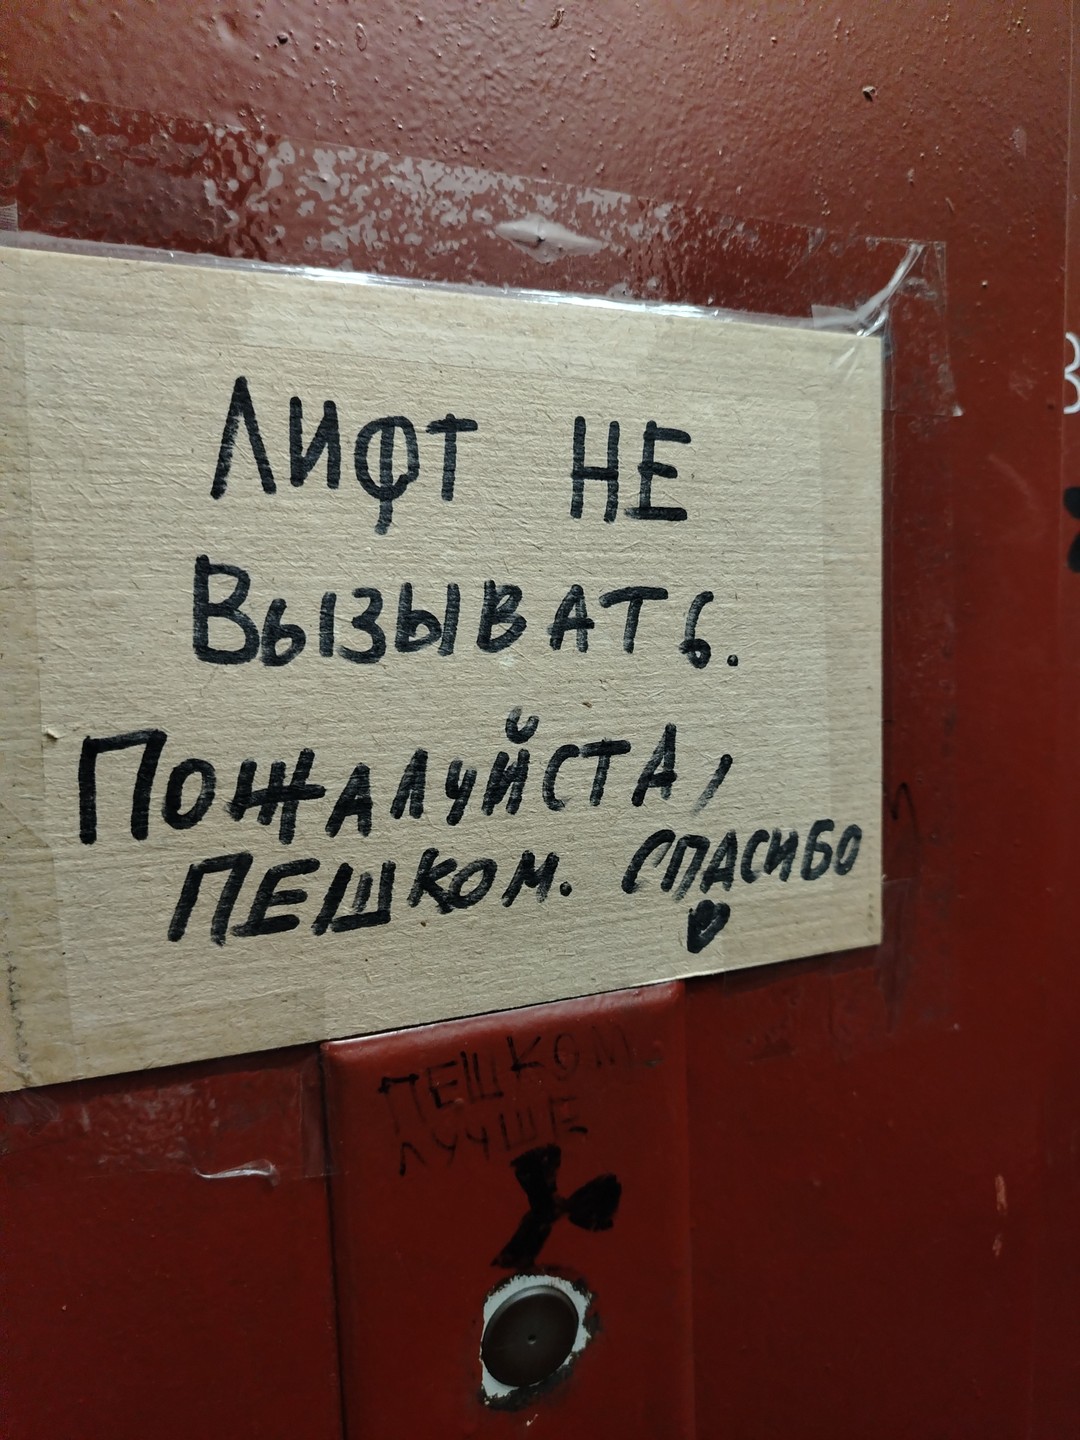 ЛИФТ НЕ
ВЫЗЫВАТЬ.
ПОЖАЛУЙСТА,
ПЕШКОМ. СПАСИБО
♥
ПЕШКОМ
ЛУЧШЕ